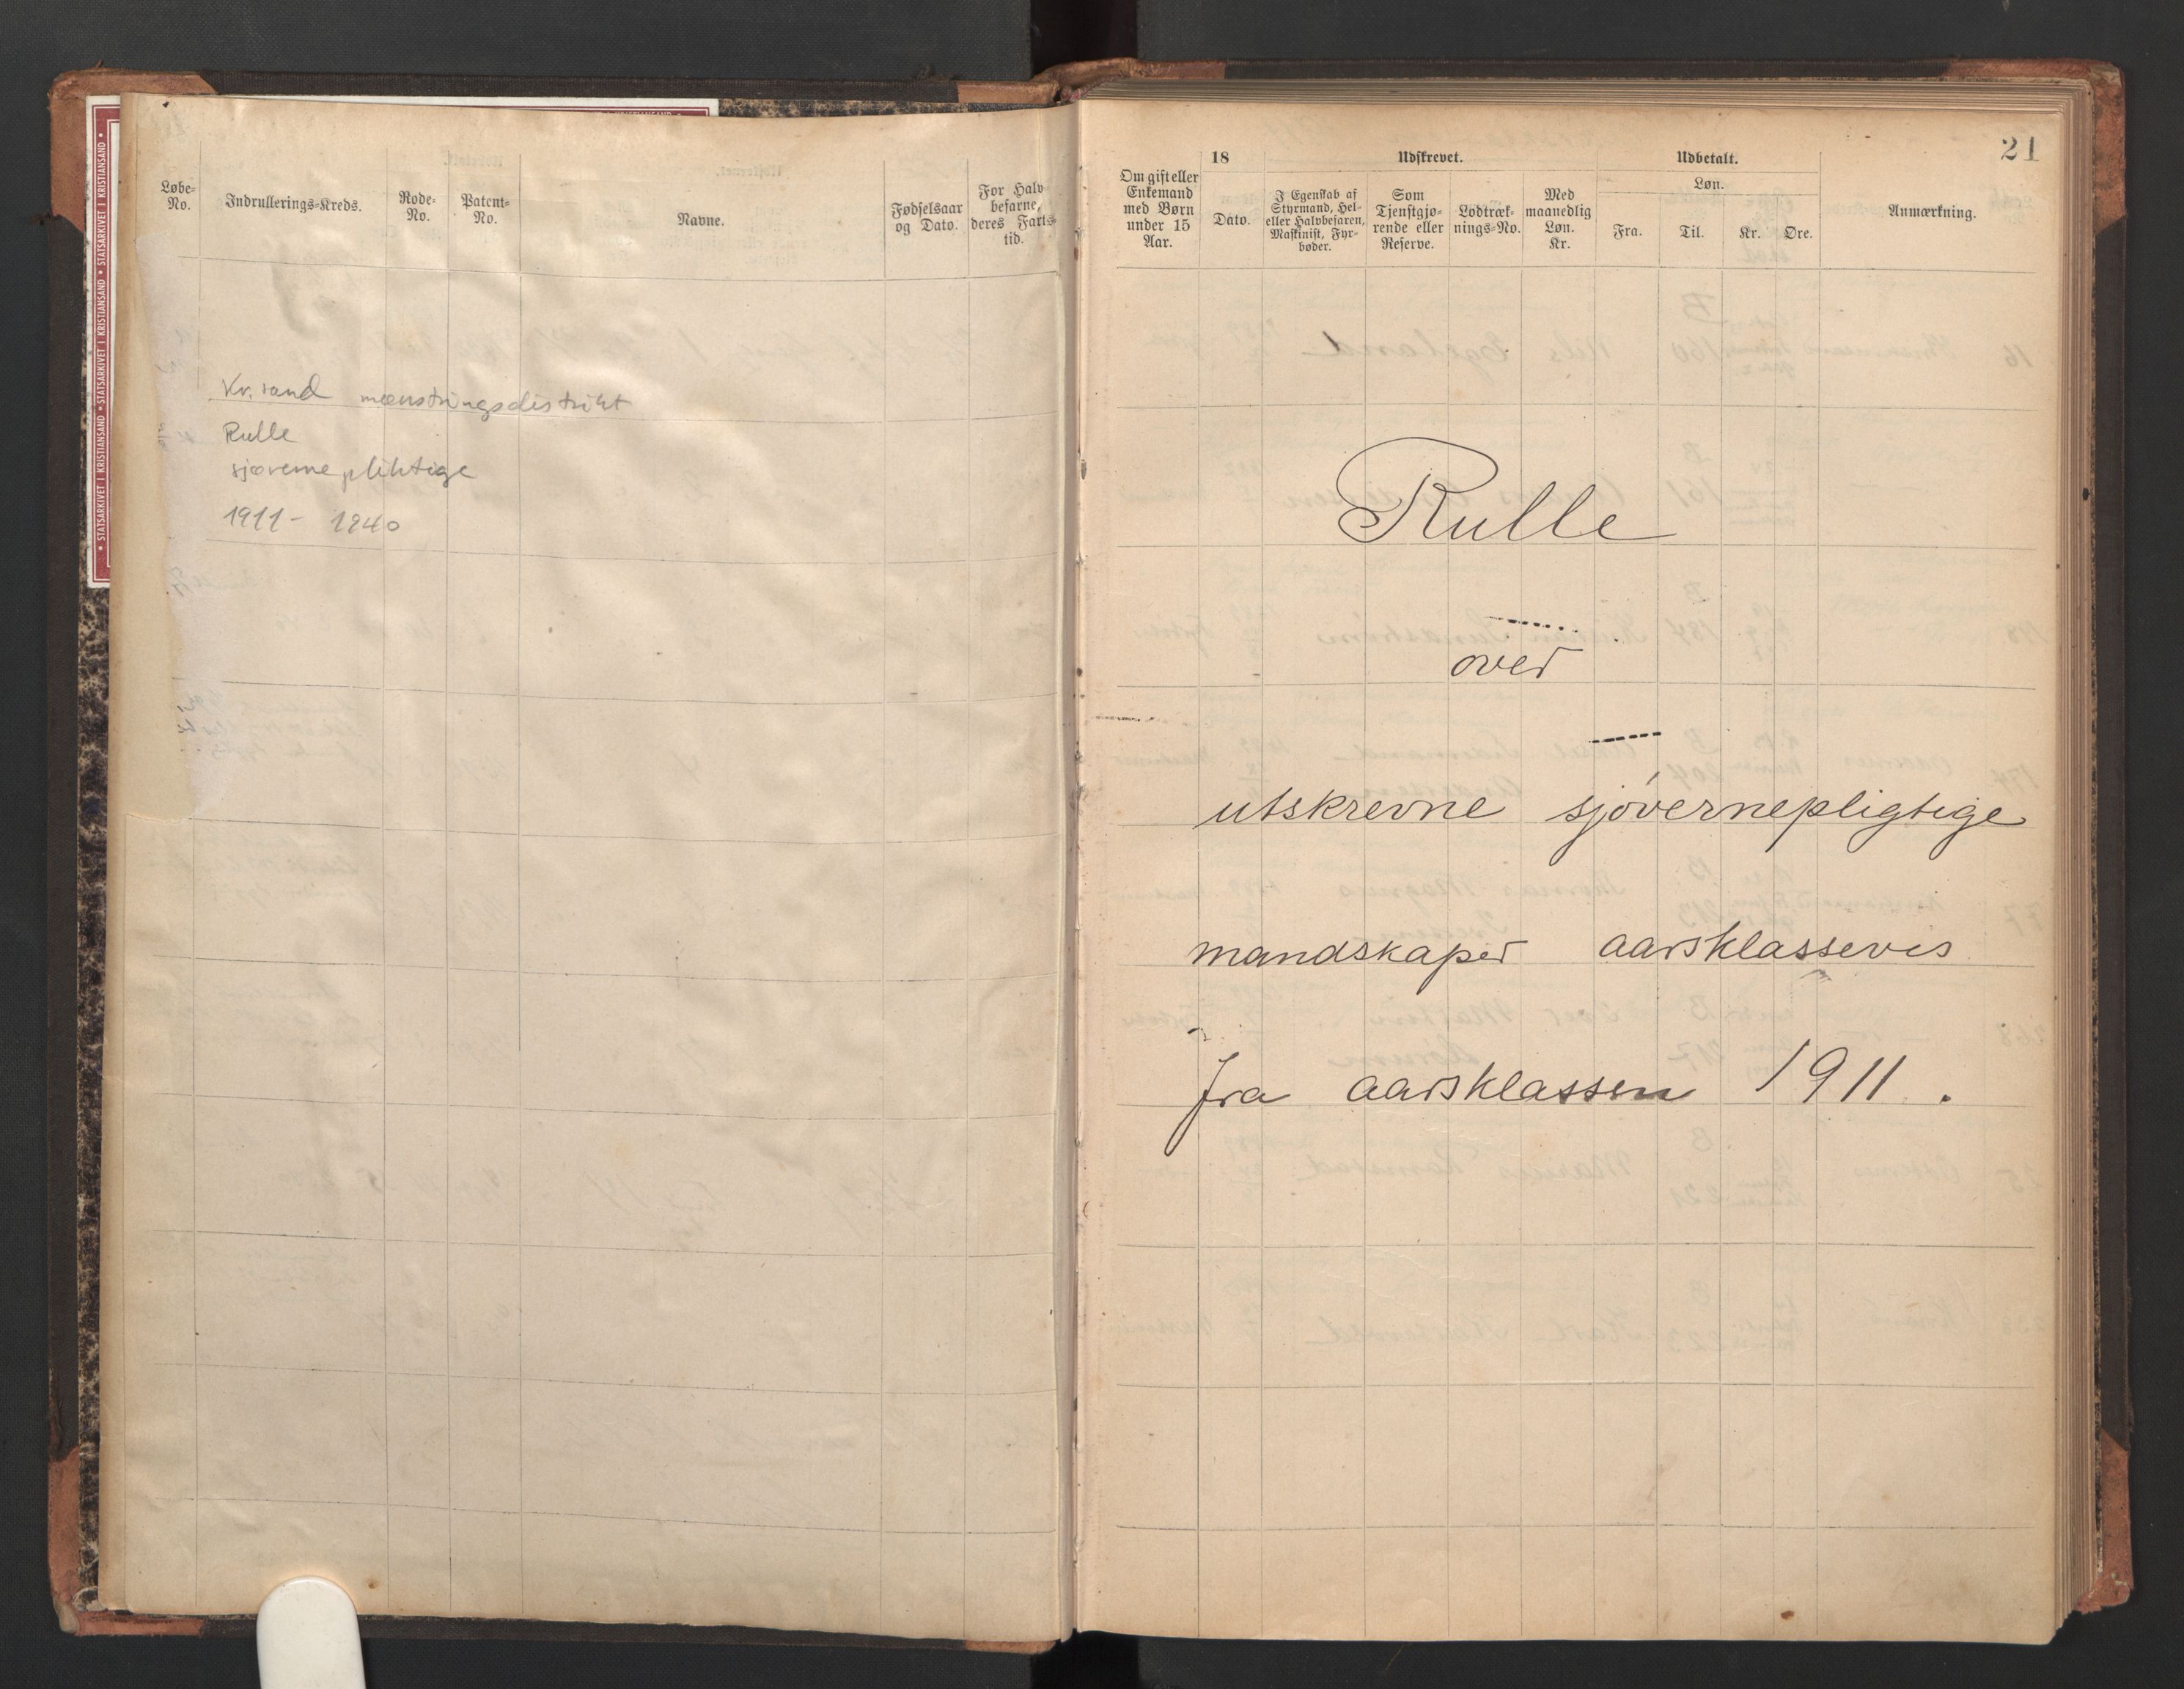 STATSARKIVET I KRISTIANSAND • STATSARKIVET I KRISTIANSAND • STATSARKIVET I KRISTIANSAND
Løbe-
No.
Indrullerings-Kreds.
Rode-
No.
Patent-
No.
Navne.
Fødselsaar
og Dato.
For Halv-
befarne,
deres Farts-
tid.
Kr.sand mønstringsdistrikt
Rulle
sjøvernepliktige
1911 - 1940
21
Om gift eller
Enkemand
med Børn
under 15
Aar.
18
Dato.
Udskrevet.
I Egenskab af
Styrmand, Hel-
eller Halvbefaren,
Maskinist, Fyr-
bøder.
Som
Tjenstgjø-
rende eller
Reserve.
Lodtræk-
nings-No.
Med
maanedlig
Løn.
Kr.
Udbetalt.
Løn.
Fra.
Til.
Kr.
Øre.
Anmærkning.
Rulle
over
utskrevne sjövernepligtige
mandskaper aarsklassevis
fra aarsklassen 1911.